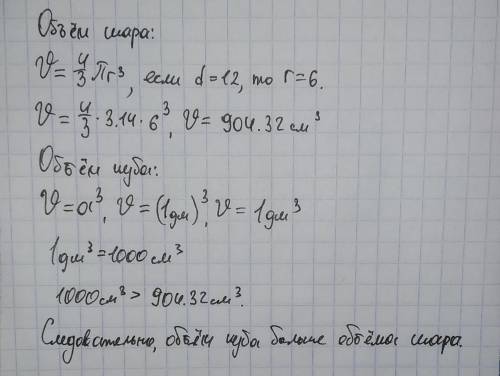 Объём шара:
V = 4/3 Пr³, если d=12, то r=6.
V = 4/3 · 3.14 · 6³, V = 904.32 см³
Объём куба:
V=a³, V=(1дм)³, V = 1дм³
1дм³=1000см³
1000см³ > 904.32 см³.
Следовательно, объём куба больше объёма шара.